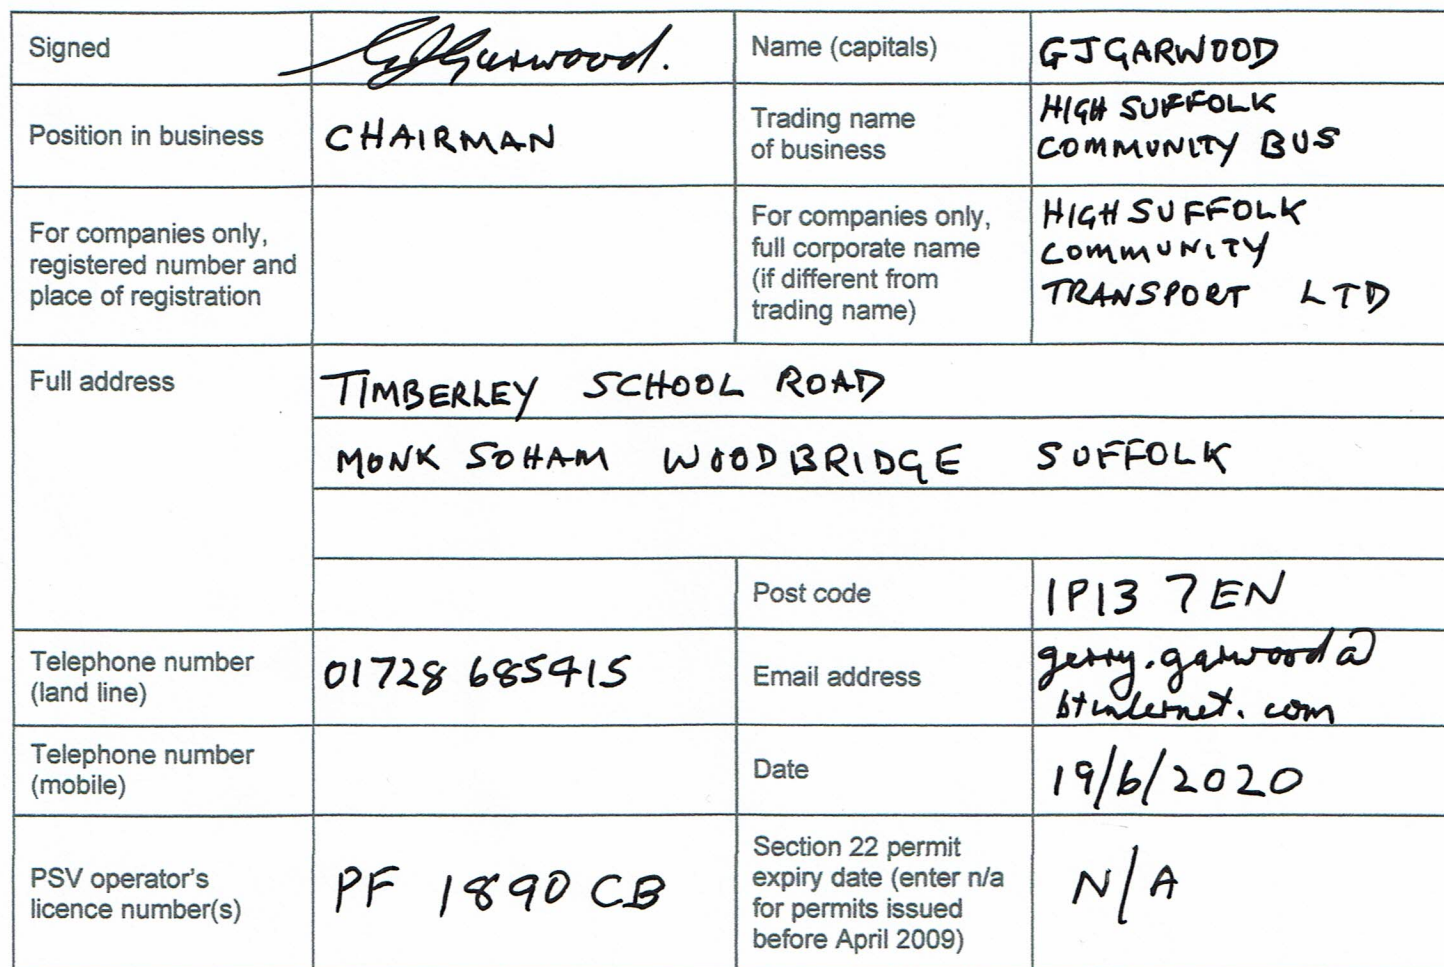 Signed
GJGarwood.
Name (capitals)
GJGARWOOD
Position in business
CHAIRMAN
Trading name
of business
HIGH SUFFOLK
COMMUNITY BUS
For companies only,
registered number and
place of registration
For companies only,
full corporate name
(if different from
trading name)
HIGH SUFFOLK
COMMUNITY
TRANSPORT LTD
Full address
TIMBERLEY SCHOOL ROAD
MONK SOHAM WOODBRIDGE SUFFOLK
Post code
IP13 7EN
Telephone number
(land line)
01728 685415
Email address
gerry.garwood@
btinternet.com
Telephone number
(mobile)
Date
19/6/2020
PSV operator's
licence number(s)
PF 1890 CB
Section 22 permit
expiry date (enter n/a
for permits issued
before April 2009)
N/A